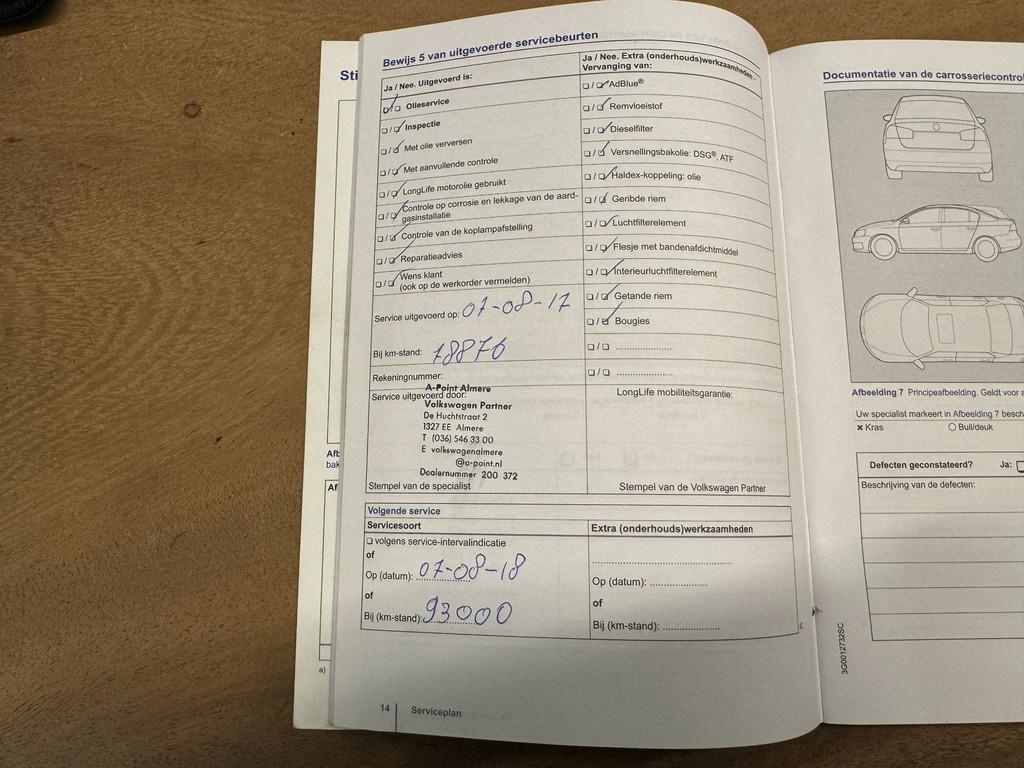 Sti
Bewijs 5 van uitgevoerde servicebeurten
Ja / Nee. Uitgevoerd is:
Olieservice
Inspectie
Met olie verversen
Met aanvullende controle
LongLife motorolie gebruikt
Controle op corrosie en lekkage van de aard-
gasinstallatie
Controle van de koplampafstelling
Reparatieadvies
Wens klant
(ook op de werkorder vermelden)
Service uitgevoerd op: 07-08-17
Bij km-stand: 78876
Rekeningnummer:
Service uitgevoerd door:
A-Point Almere
Volkswagen Partner
De Huchtstraat 2
1327 EE Almere
T (036) 546 33 00
E volkswagenalmere
@a-point.nl
Dealernummer 200 372
Stempel van de specialist
Ja / Nee. Extra (onderhouds)werkzaamheden.
Vervanging van:
AdBlue®
Remvloeistof
Dieselfilter
Versnellingsbakolie: DSG®, ATF
Haldex-koppeling: olie
Geribde riem
Luchtfilterelement
Flesje met bandenafdichtmiddel
Interieurluchtfilterelement
Getande riem
Bougies
LongLife mobiliteitsgarantie:
Stempel van de Volkswagen Partner
Volgende service
Servicesoort
volgens service-intervalindicatie
of
Op (datum): 07-08-18
of
Bij (km-stand): 93000
Extra (onderhouds)werkzaamheden
Op (datum):
of
Bij (km-stand):
14 Serviceplan
Afb
bak
Af
a)
Documentatie van de carrosseriecontrol
Afbeelding 7 Principeafbeelding. Geldt voor a
Uw specialist markeert in Afbeelding 7 besch
× Kras
Buil/deuk
Defecten geconstateerd? Ja:
Beschrijving van de defecten:
3G0012732SC